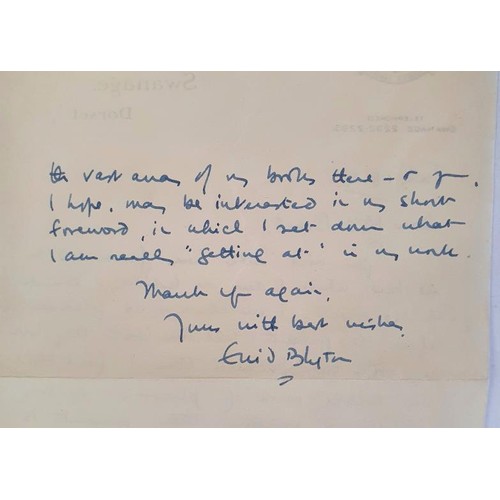 Swanage,
Dorset
TELEPHONE
SWANAGE
the vast array of my books there – & you,
I hope, may be interested in my short
foreword, in which I set down what
I am really "getting at" in my work.
Thank you again,
Yours with best wishes,
Enid Blyton